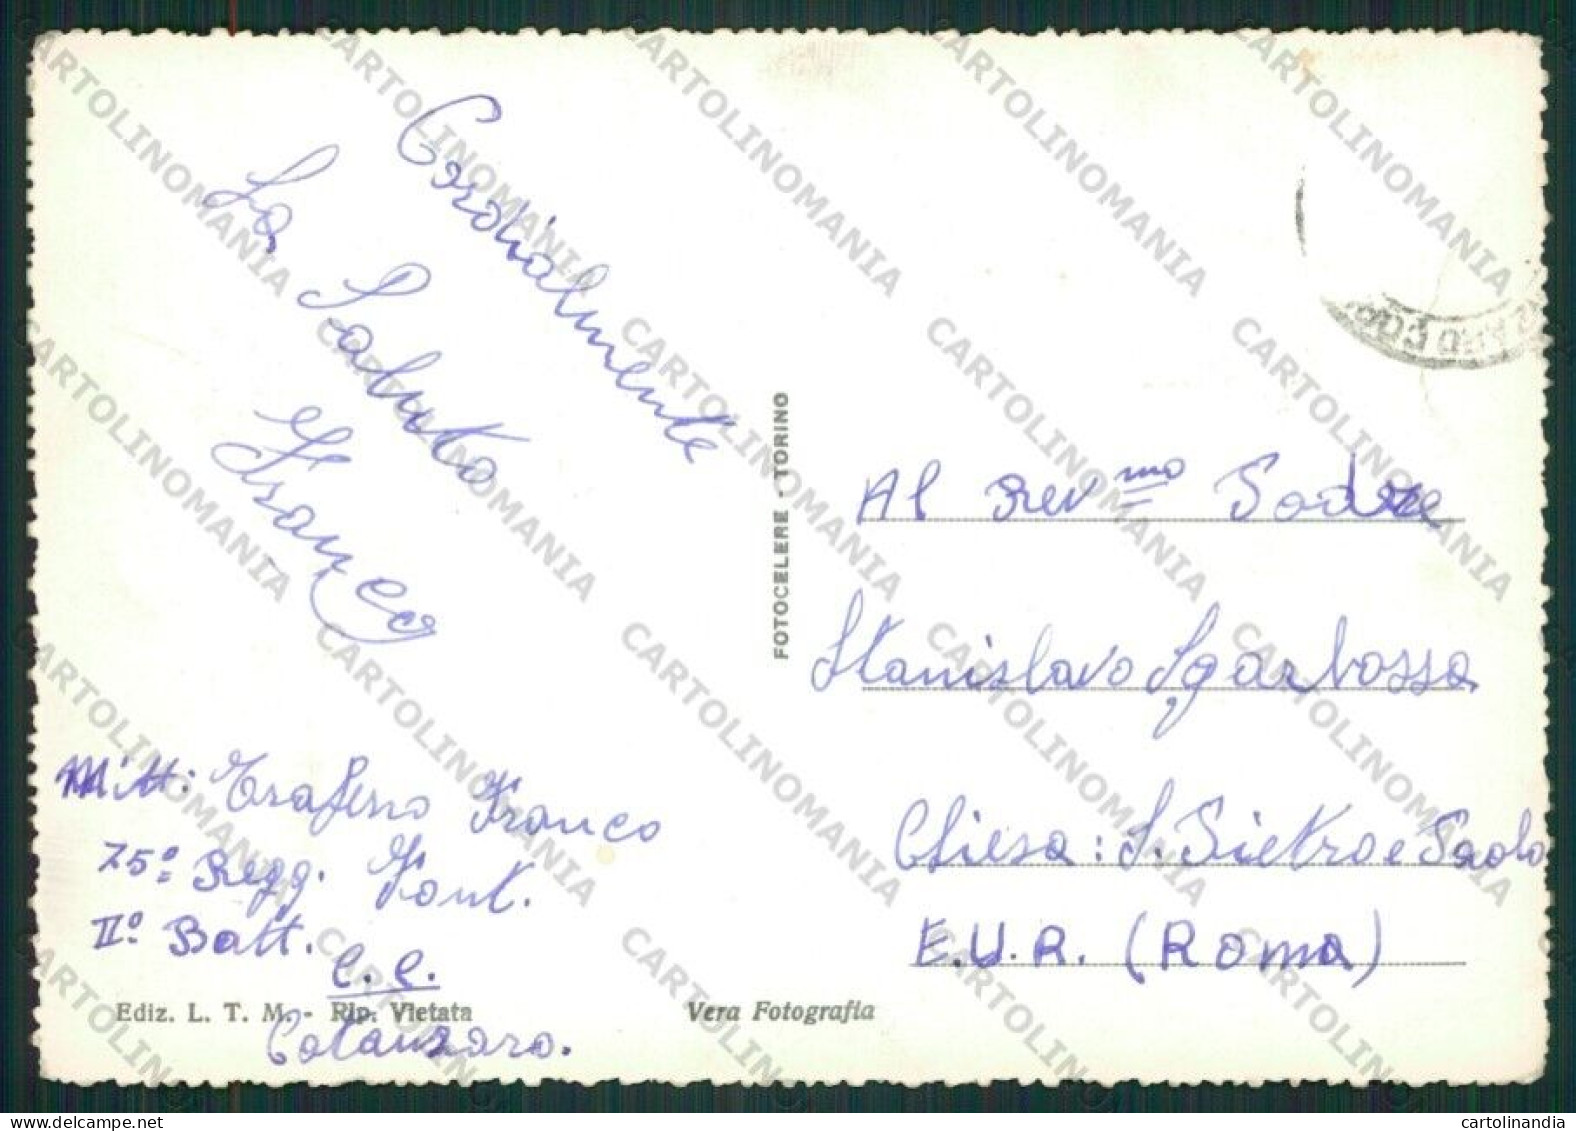 Cordialmente
La Saluto
Franco
Mitt: Traferro Franco
75º Regg. Fant.
IIº Batt.
C. C.
Catanzaro.
Ediz. L. T. M. - Rip. Vietata
Vera Fotografia
FOTOCELERE - TORINO
Al Rev.mo Padre
Stanislavo Sgarbossa
Chiesa: S. Pietro e Paolo
E.U.R. (Roma)
CARTOLINOMANIA
www.delcampe.net
cartolinandia